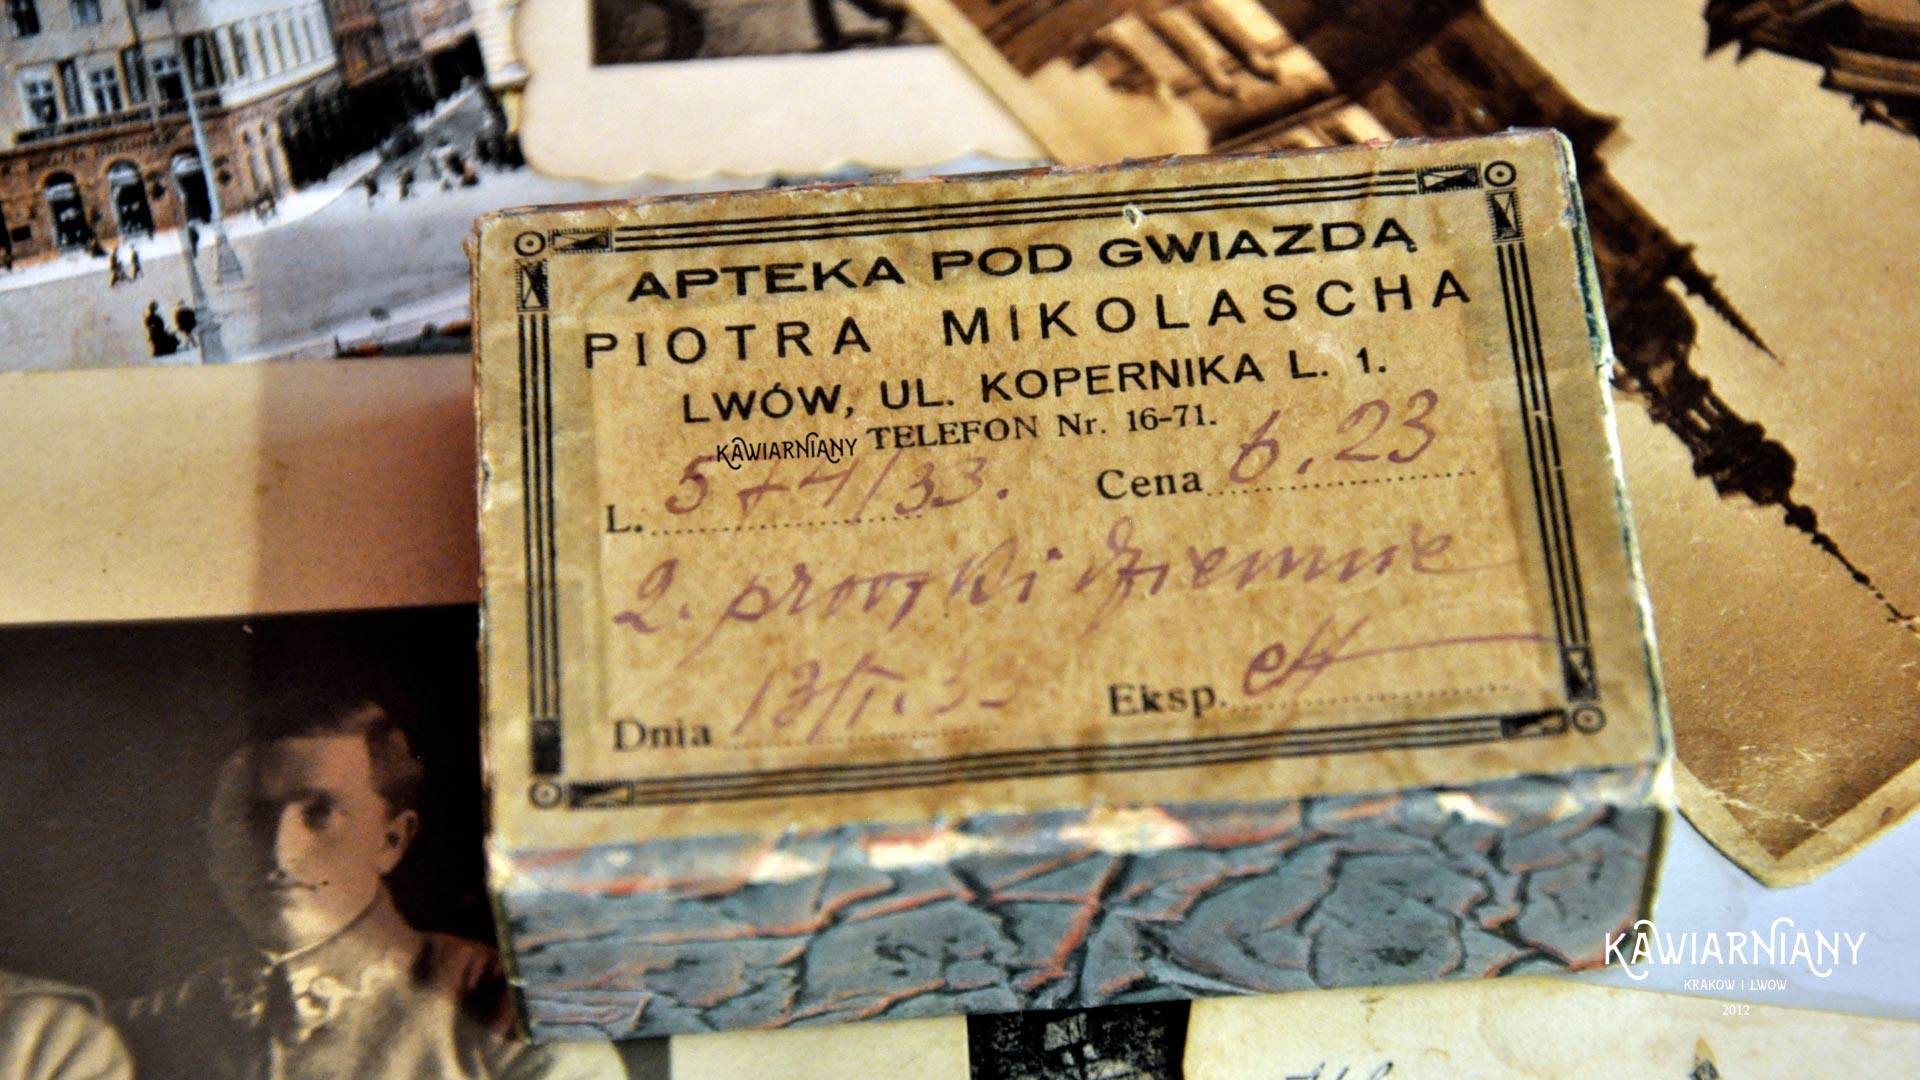 APTEKA POD GWIAZDĄ
PIOTRA MIKOLASCHA
LWÓW, UL. KOPERNIKA L. 1.
KAWIARNIANY TELEFON Nr. 16-71.
L. 574/33. Cena 6.23
2. proszki dziennie
Dnia 13/I. 33 Eksp.
KAWIARNIANY
KRAKÓW I LWÓW
2012